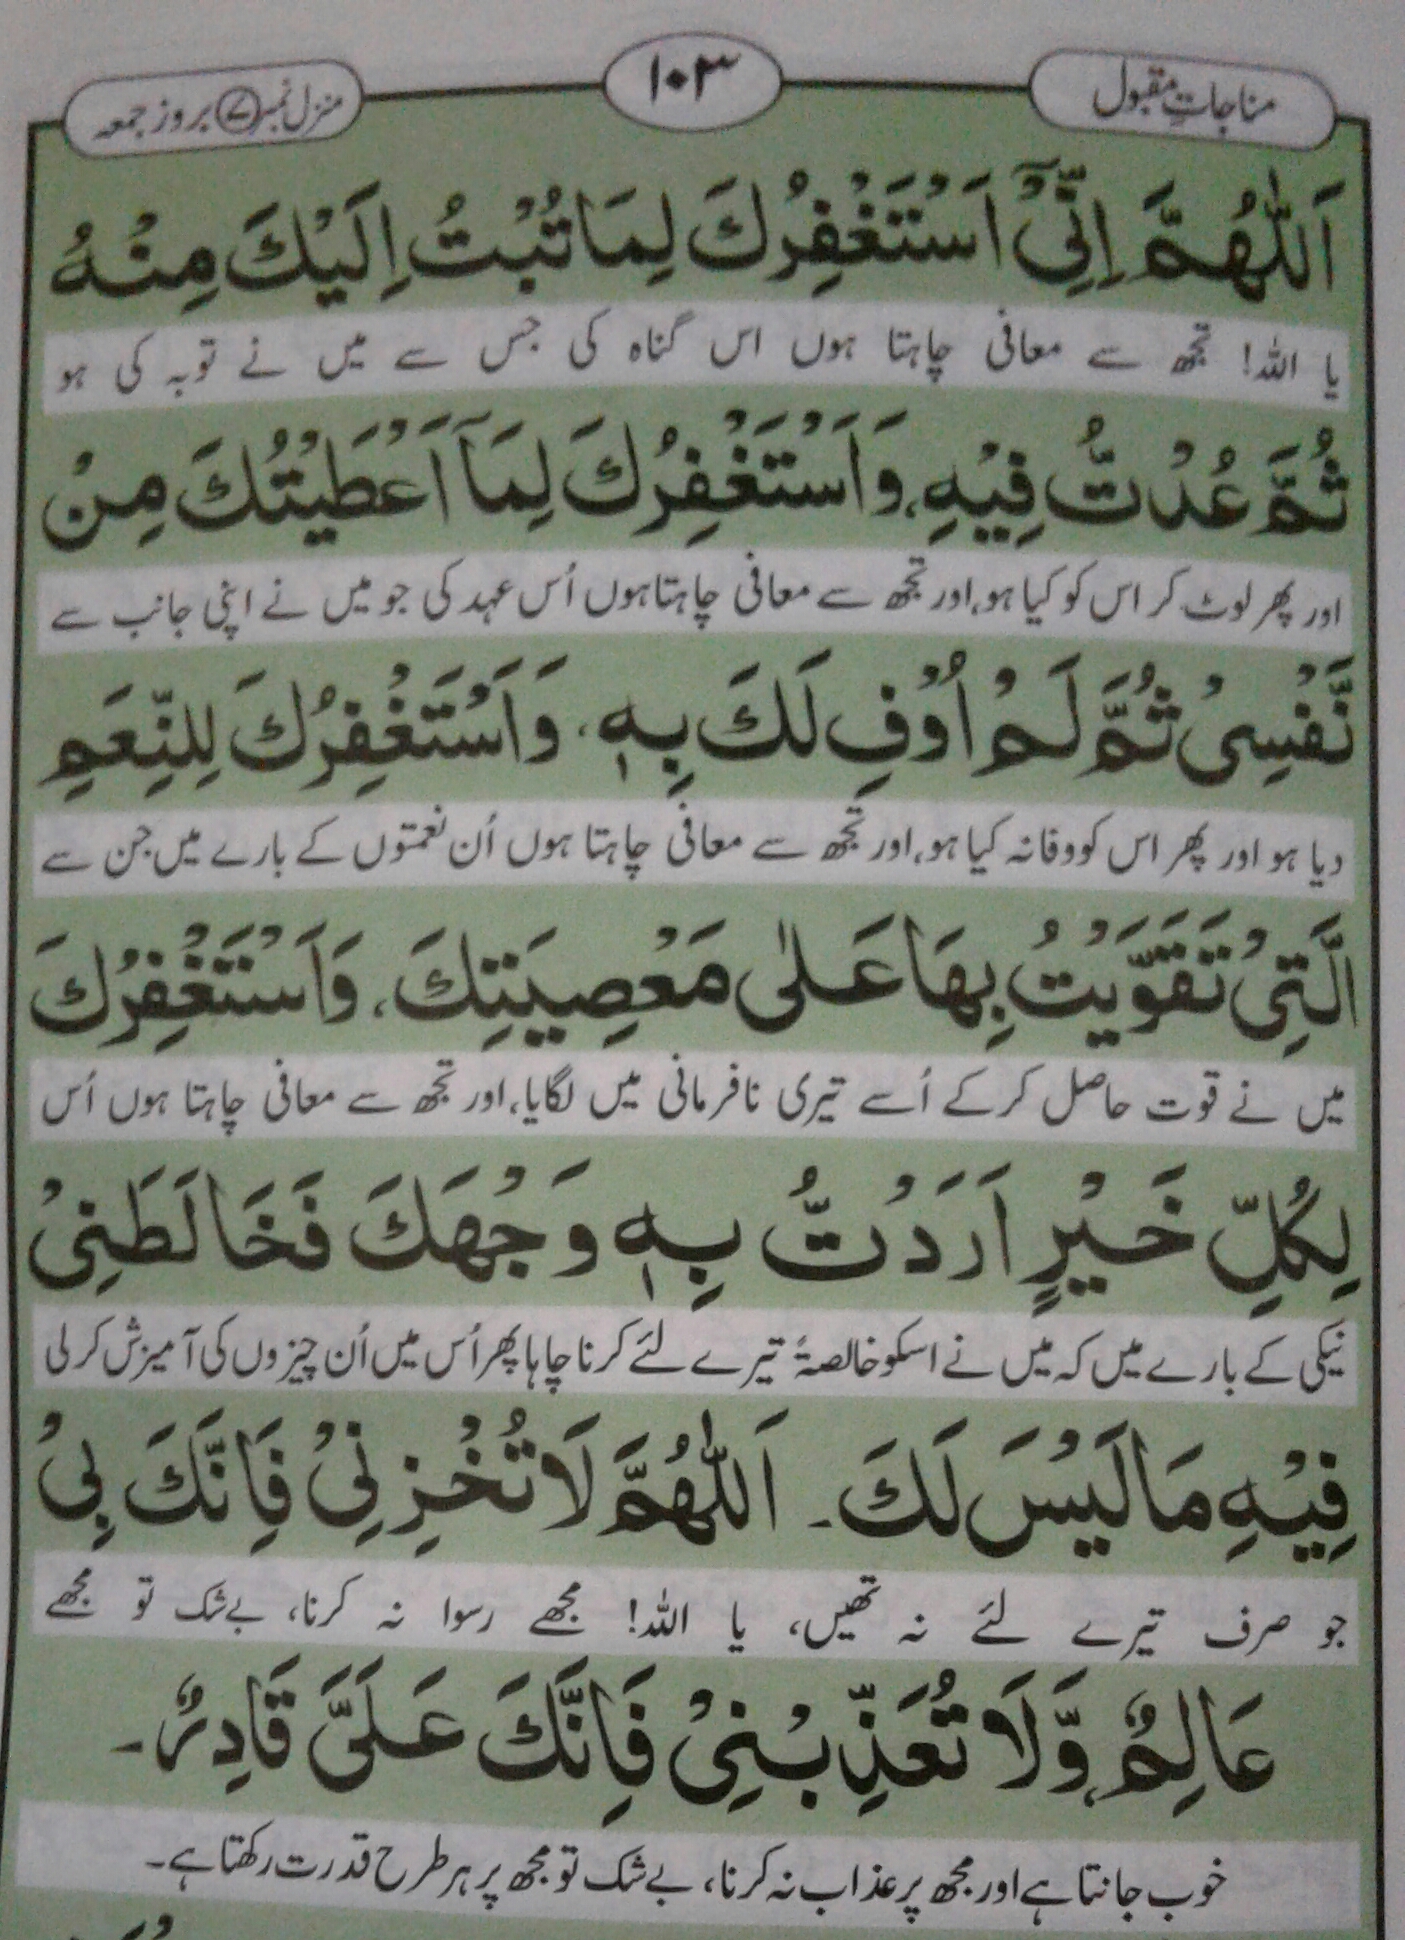 مناجاتِ مقبول
۱۰۳
منزل نمبر ⑦ بروز جمعہ
اَللّٰهُمَّ اِنِّىْٓ اَسْتَغْفِرُكَ لِمَا تُبْتُ اِلَيْكَ مِنْهُ
یا اللہ! تجھ سے معافی چاہتا ہوں اس گناہ کی جس سے میں نے توبہ کی ہو
ثُمَّ عُدْتُّ فِيْهِ، وَاَسْتَغْفِرُكَ لِمَآ اَعْطَيْتُكَ مِنْ
اور پھر لوٹ کر اس کو کیا ہو، اور تجھ سے معافی چاہتا ہوں اُس عہد کی جو میں نے اپنی جانب سے
نَّفْسِىْ ثُمَّ لَمْ اُوْفِ لَكَ بِهٖ، وَاَسْتَغْفِرُكَ لِلنِّعَمِ
دیا ہو اور پھر اس کو وفا نہ کیا ہو، اور تجھ سے معافی چاہتا ہوں اُن نعمتوں کے بارے میں جن سے
الَّتِىْ تَقَوَّيْتُ بِهَا عَلٰى مَعْصِيَتِكَ، وَاَسْتَغْفِرُكَ
میں نے قوت حاصل کر کے اُسے تیری نافرمانی میں لگایا، اور تجھ سے معافی چاہتا ہوں اُس
لِكُلِّ خَيْرٍ اَرَدْتُّ بِهٖ وَجْهَكَ فَخَالَطَنِىْ
نیکی کے بارے میں کہ میں نے اسکو خالصۃً تیرے لئے کرنا چاہا پھر اُس میں اُن چیزوں کی آمیزش کر لی
فِيْهِ مَا لَيْسَ لَكَ۔ اَللّٰهُمَّ لَا تُخْزِنِىْ فَاِنَّكَ بِىْ
جو صرف تیرے لئے نہ تھیں، یا اللہ! مجھے رسوا نہ کرنا، بے شک تو مجھے
عَالِمٌ، وَّلَا تُعَذِّبْنِىْ فَاِنَّكَ عَلَىَّ قَادِرٌ۔
خوب جانتا ہے اور مجھ پر عذاب نہ کرنا، بے شک تو مجھ پر ہر طرح قدرت رکھتا ہے۔